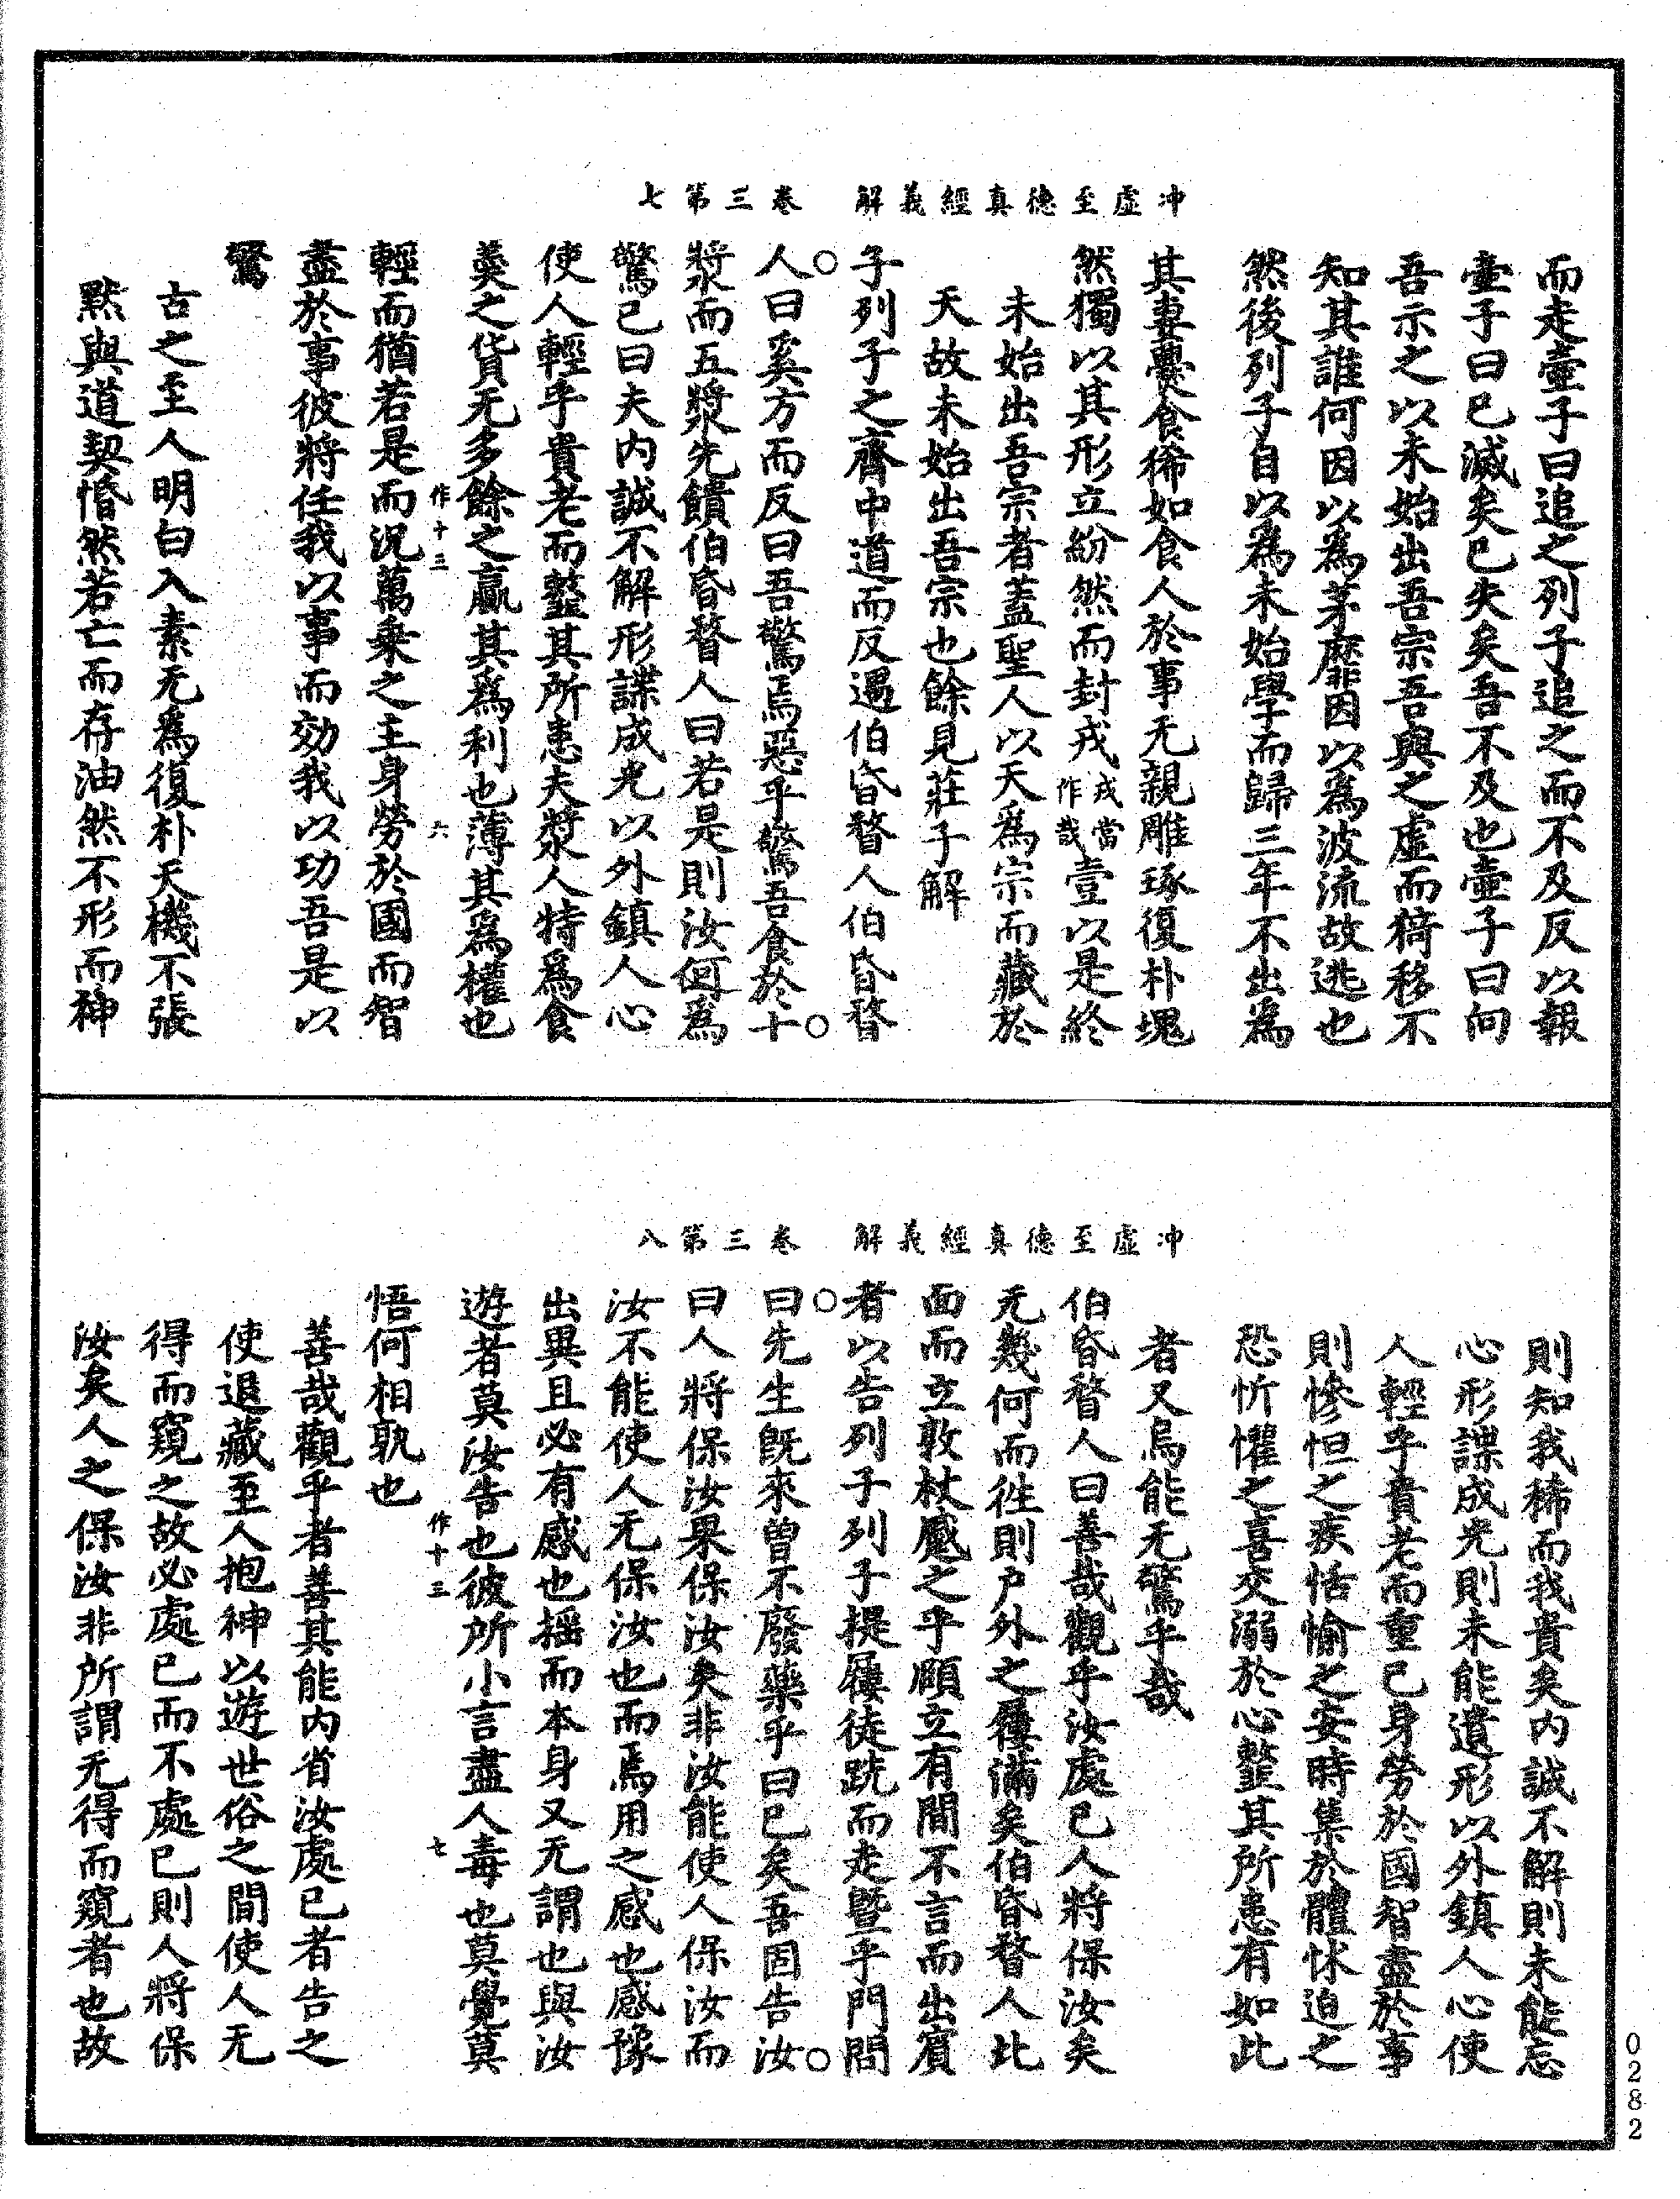 沖虛至德真經義解　卷三第七
而走壺子曰追之列子追之而不及反以報
壺子曰已滅矣已失矣吾不及也壺子曰向
吾示之以未始出吾宗吾與之虛而猗移不
知其誰何因以為茅靡因以為波流故逃也
然後列子自以為未始學而歸三年不出為
其妻爨食狶如食人於事无親雕琢復朴塊
然獨以其形立紛然而封戎戎當作哉壹以是終
未始出吾宗者蓋聖人以天為宗而藏於
天故未始出吾宗也餘見莊子解
子列子之齊中道而反遇伯昏瞀人伯昏瞀
人曰奚方而反曰吾驚焉惡乎驚吾食於十
漿而五漿先饋伯昏瞀人曰若是則汝何為
驚已曰夫內誠不解形諜成光以外鎮人心
使人輕乎貴老而䪠其所患夫漿人特為食
羹之貨无多餘之贏其為利也薄其為權也
作十三　六
輕而猶若是而況萬乘之主身勞於國而智
盡於事彼將任我以事而効我以功吾是以
驚
古之至人明白入素无為復朴天機不張
默與道契惛然若亡而存油然不形而神
沖虛至德真經義解　卷三第八
則知我稀而我貴矣內誠不解則未能忘
心形諜成光則未能遺形以外鎮人心使
人輕乎貴老而重己身勞於國智盡於事
則慘怛之疾恬愉之安時集於體怵迫之
恐忻懼之喜交溺於心䪠其所患有如此
者又烏能无驚乎哉
伯昏瞀人曰善哉觀乎汝處已人將保汝矣
无幾何而徃則户外之屨滿矣伯昏瞀人北
面而立敦杖蹙之乎頤立有間不言而出賓
者以告列子列子提屨徒跣而走暨乎門問
曰先生旣來曾不廢藥乎曰已矣吾固告汝
曰人將保汝果保汝矣非汝能使人保汝而
汝不能使人无保汝也而焉用之感也感豫
出異且必有感也搖而本身又无謂也與汝
遊者莫汝告也彼所小言盡人毒也莫覺莫
作十三　七
悟何相孰也
善哉觀乎者善其能內省汝處已者告之
使退藏至人抱神以遊世俗之間使人无
得而窺之故必處已而不處已則人將保
汝矣人之保汝非所謂无得而窺者也故
0282